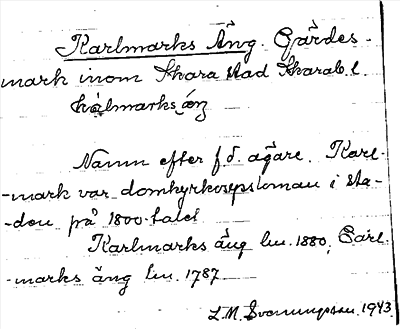 Karlmarks Äng. Gärdes-
mark inom Skara stad Skarab. l.
kálmarks ä̀ŋ
Namn efter f. d. ägare. Karl-
-mark var domkyrkosysloman i sta-
-den på 1800-talet
Karlmarks äng lm. 1880, Carl-
-marks äng lm. 1787
L.M. Svenungsson. 1943